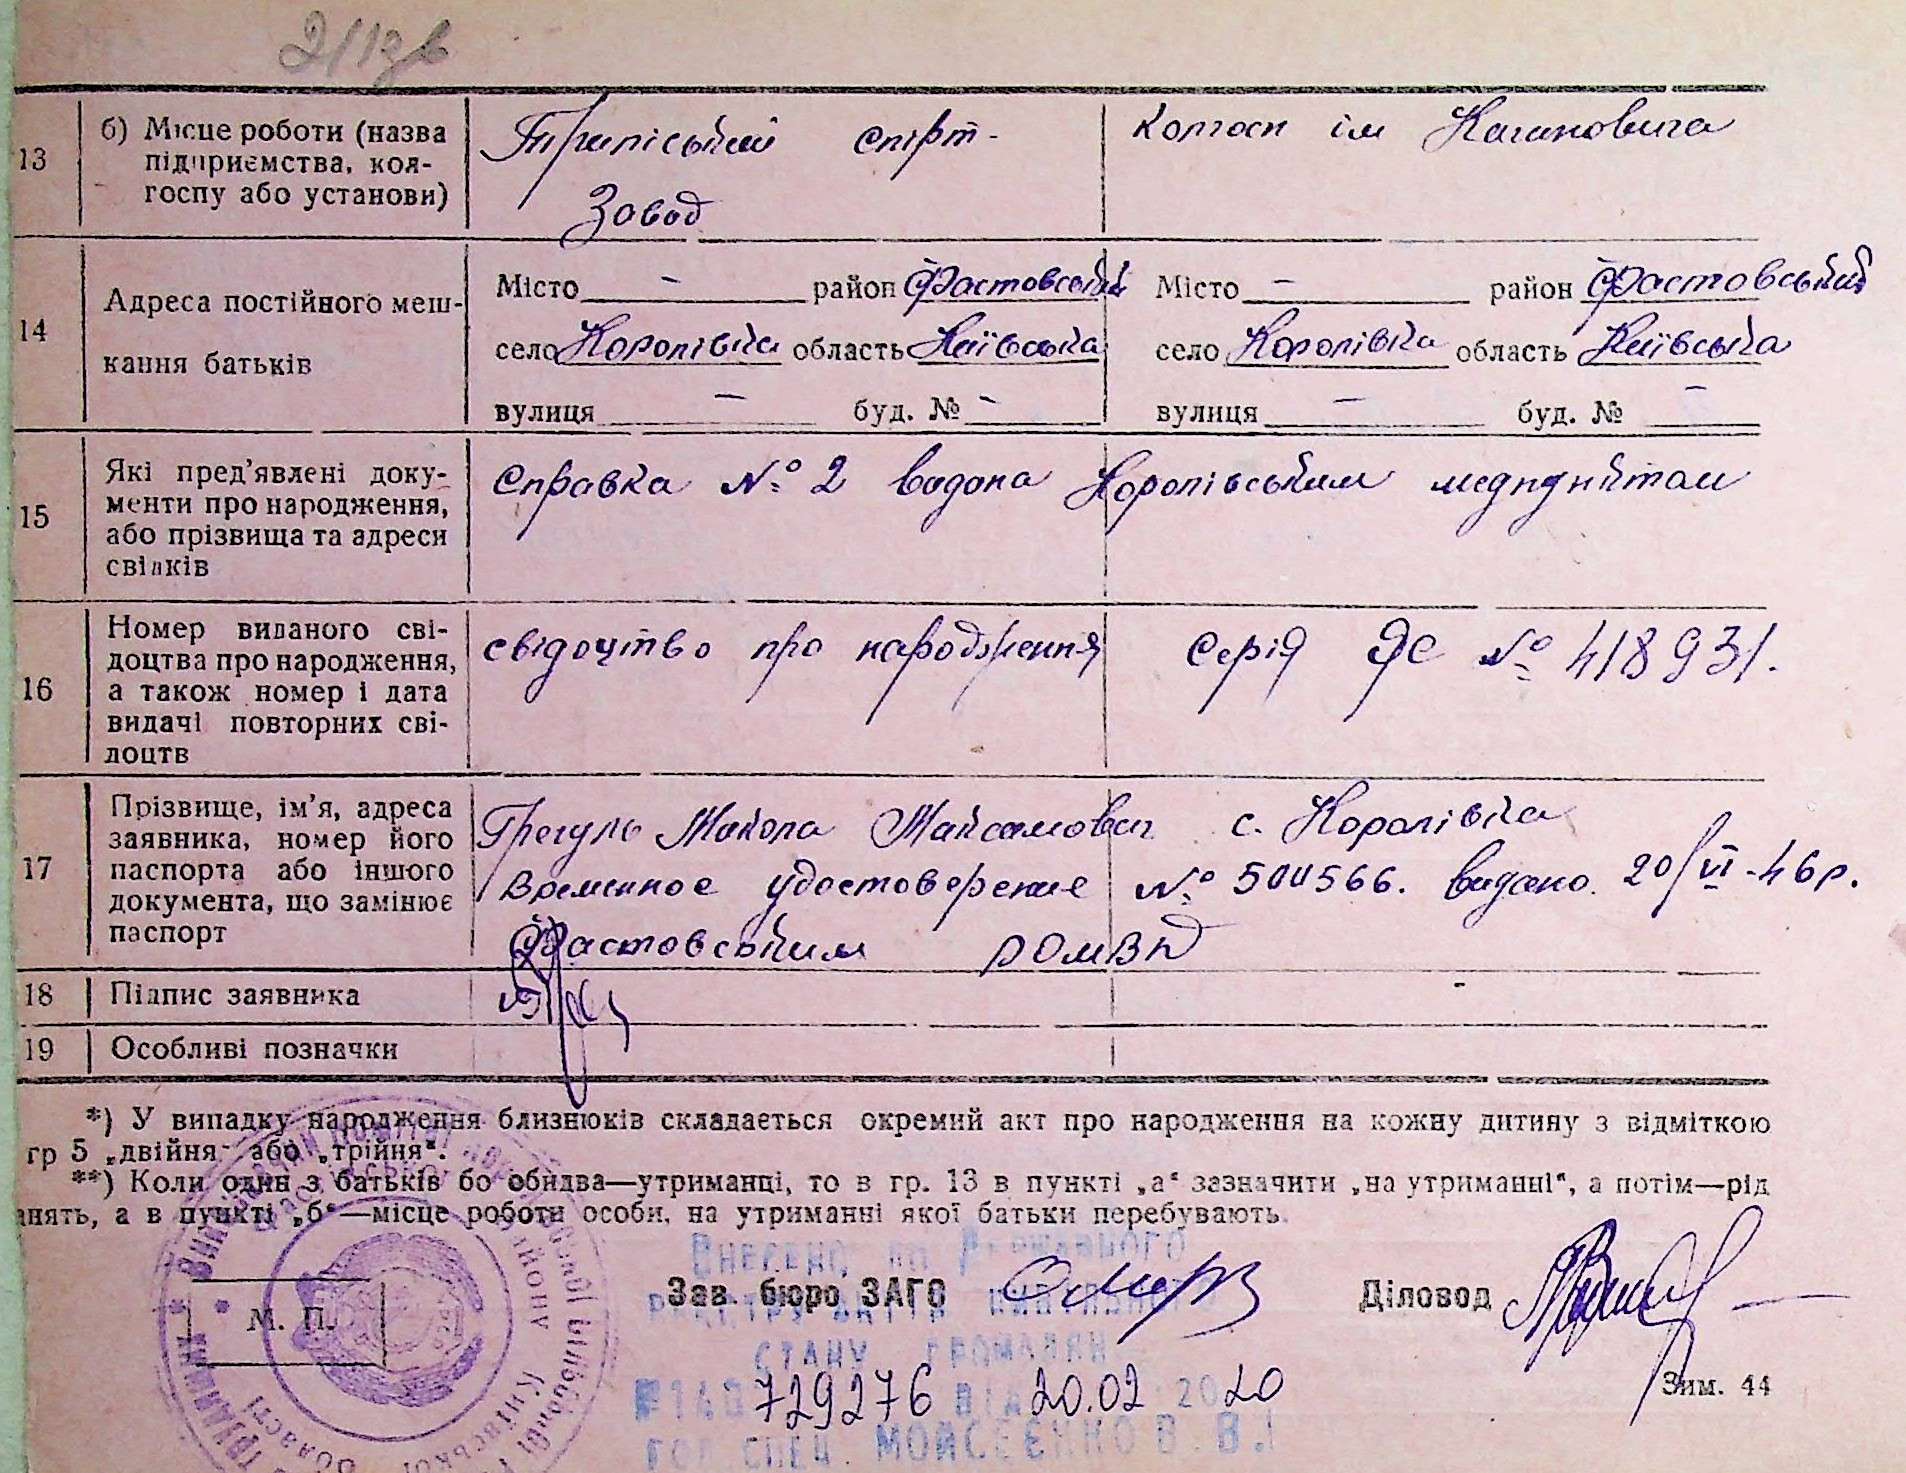 13 б) Місце роботи (назва підприємства, кол-госпу або установи)
Трипіський спірт-
Завод
Колгосп ім Кагановича
14 Адреса постійного меш-
кання батьків
Місто — район Фастовський
село Королівка область Київська
вулиця — буд. № —
Місто — район Фастовський
село Королівка область Київська
вулиця — буд. № —
15 Які пред'явлені доку-
менти про народження,
або прізвища та адреси
свідків
Справка № 2 видана Королівським медпунктом
16 Номер виданого сві-
доцтва про народження,
а також номер і дата
видачі повторних сві-
доцтв
свідоцтво про народження Серія ЯС № 418931.
17 Прізвище, ім'я, адреса
заявника, номер його
паспорта або іншого
документа, що замінює
паспорт
Грегуль Микола Максимович с. Королівка
Временное удостоверение № 500566. видано. 20/VI-46р.
Фастовським РОМВД
18 Підпис заявника
19 Особливі позначки
*) У випадку народження близнюків складається окремий акт про народження на кожну дитину з відміткою
гр 5 „двійня" або „трійня".
**) Коли один з батьків бо обидва—утриманці, то в гр. 13 в пункті „а" зазначити „на утриманні", а потім—рід
анять, а в пункті „б"—місце роботи особи, на утриманні якої батьки перебувають.
М. П.
Зав. бюро ЗАГС
Діловод
Внесено до Державного
реєстру актів цивільного
стану громадян
729276 від 20.02 2020
гол. спец. Мойсеєнко В. В.
Зим. 44